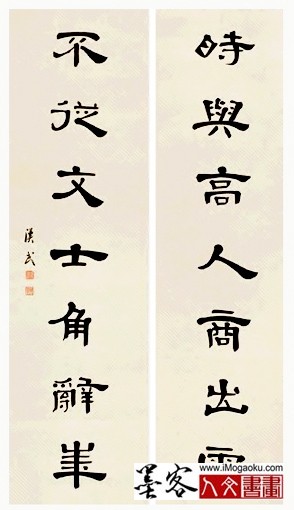 時與高人商出
不從文士角辭華
漢民
墨客
www.iMogaoku.com
人文書畫